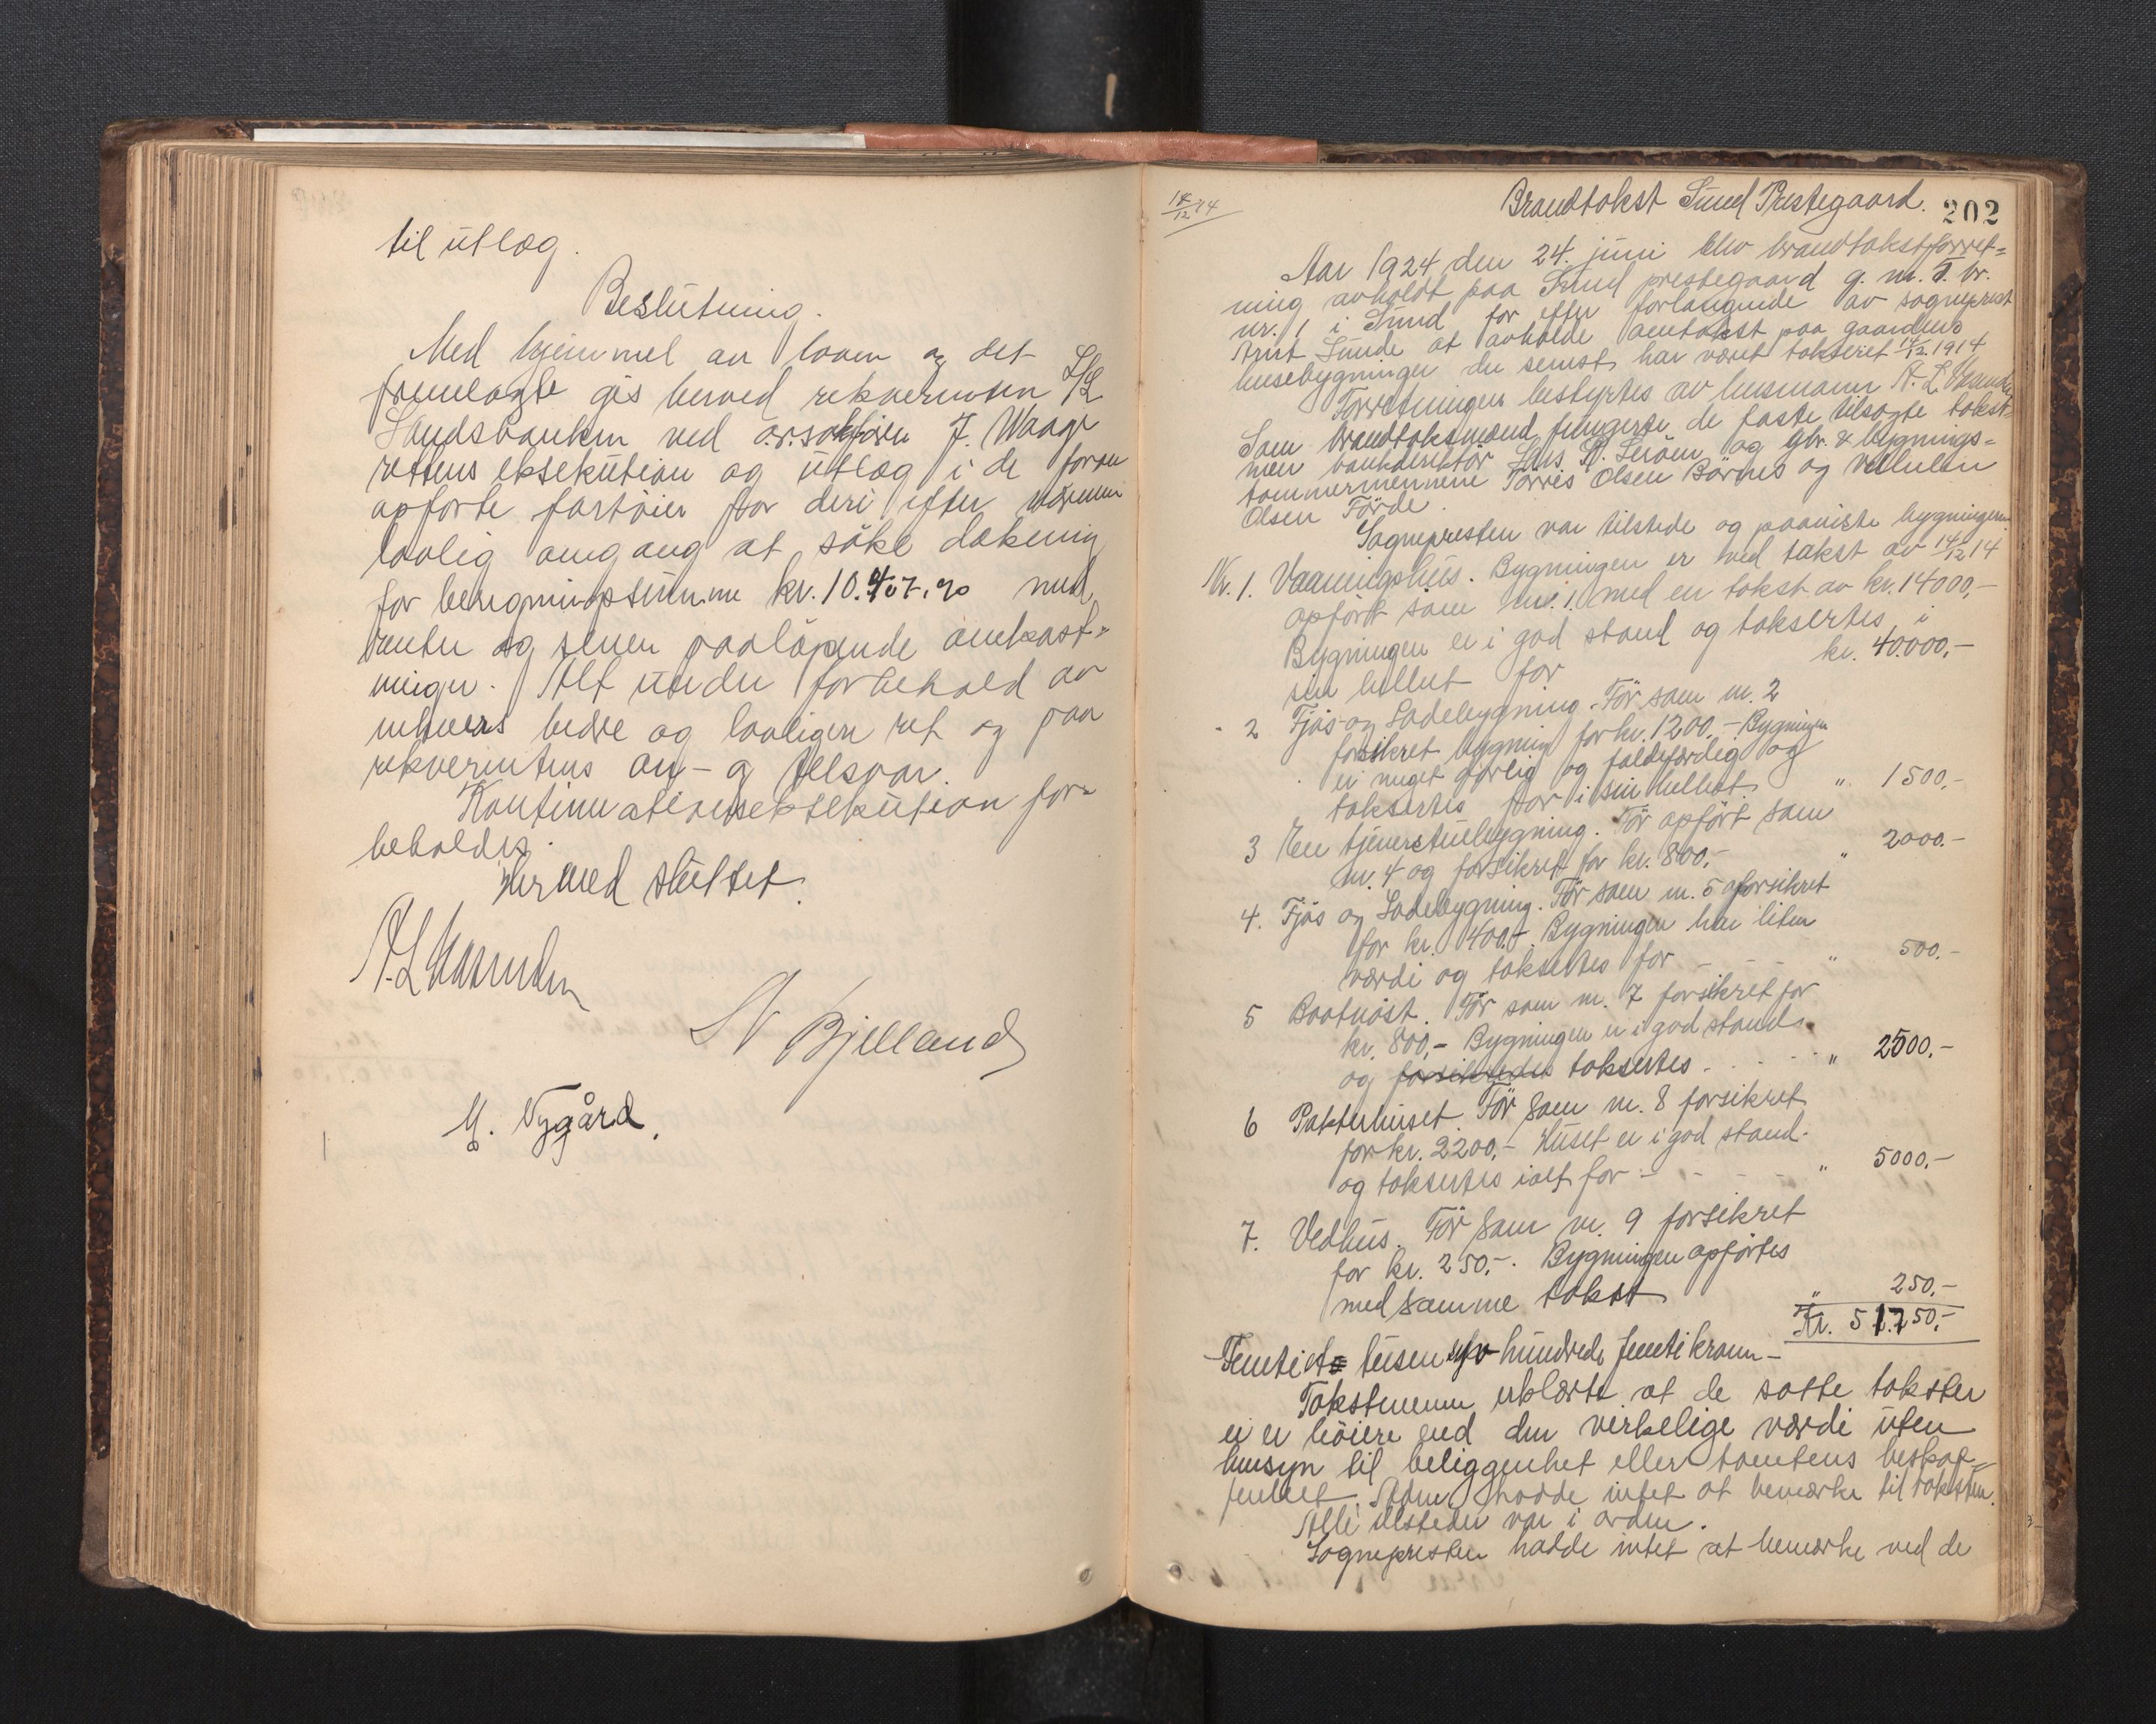 til utlæg.
Beslutning.
Med hjemmel av loven og det
fremlagte gis herved rekvirenten L/L
Landsbanken ved o.r.sakfører J. Waage
rettens eksekution og utlæg i de foran
opførte fartøier for deri efter nærmere
lovlig omgang at søke dækning
for beregningssumme kr. 10.407.90 med
renter og senere paaløpende omkost-
ninger. Alt under forbehold av
enhvers bedre og lovligere ret og paa
rekventens an- og tilsvar.
Kontinuationseksekution for-
beholdes.
Hermed sluttet.
A. L.
N Bjelland
M. Nygård.
14/12 14
Brandtakst Sund Prestegaard. 202
Aar 1924 den 24. juni blev brandtakstforret-
ning avholdt paa Sund prestegaard g. nr. 5. br.
nr. 1 i Sund for efter forlangende av sogneprest
Arnt Sunde at avholde omtakst paa gaardens
husebygninger der senest har været takseret 14/12. 1914
Forretningen bestyrtes av lensmann A. L.
Som brandtaksmænd fungerte de faste tilsagte takst-
men bankdirektør Lars Leröen og gbr. & bygnings-
tømmermennene Torris Olsen Børnes og Vilhelm
Olsen Förde.
Sognepresten var tilstede og paaviste bygningene
Nr. 1. Vaaningshus. Bygningen er ved takst av 14/12 14
opført som nr. 1. med en takst av kr. 14000,-
Bygningen er i god stand og taksertes i
sin helhet for kr. 40.000,-
- 2 Fjøs- og Ladebygning. Før som nr. 2
forsikret bygning for kr. 1200,- Bygningen
er meget dårlig og faldefærdig og
taksertes for i sin helhet " 1500,-
3 En tjenerstuebygning. Før opført som
nr. 4 og forsikret for kr. 800,- " 2000.-
4. Fjøs og Ladebygning. Før som nr. 5 forsikret
for kr. 400.-. Bygningen har liten
værdi og taksertes for - - - " 500.-
5 Baatnøst. Før som nr. 7 forsikret for
kr. 800,- Bygningen er i god stand
og forsikredes taksertes. - - - " 2500.-
6 Pakterhuset. Før som nr. 8 forsikret
for kr. 2200,- Huset er i god stand.
og taksertes ialt for - - - - " 5000.-
7. Vedhus. Før som nr. 9 forsikret
for kr. 250,-. Bygningen opførtes
med samme takst " 250.-
Kr. 51.750,-
Femti et tusen syv hundrede femti kroner -
Takstmenn erklærte at de satte takster
ei er høiere end den virkelige værdi uten
hensyn til beliggenhet eller tomtens beskaf-
fenhet. Adm. hadde intet at bemærke til taksten.
Alle ildsteder var i orden.
Sognepresten hadde intet at bemærke ved de